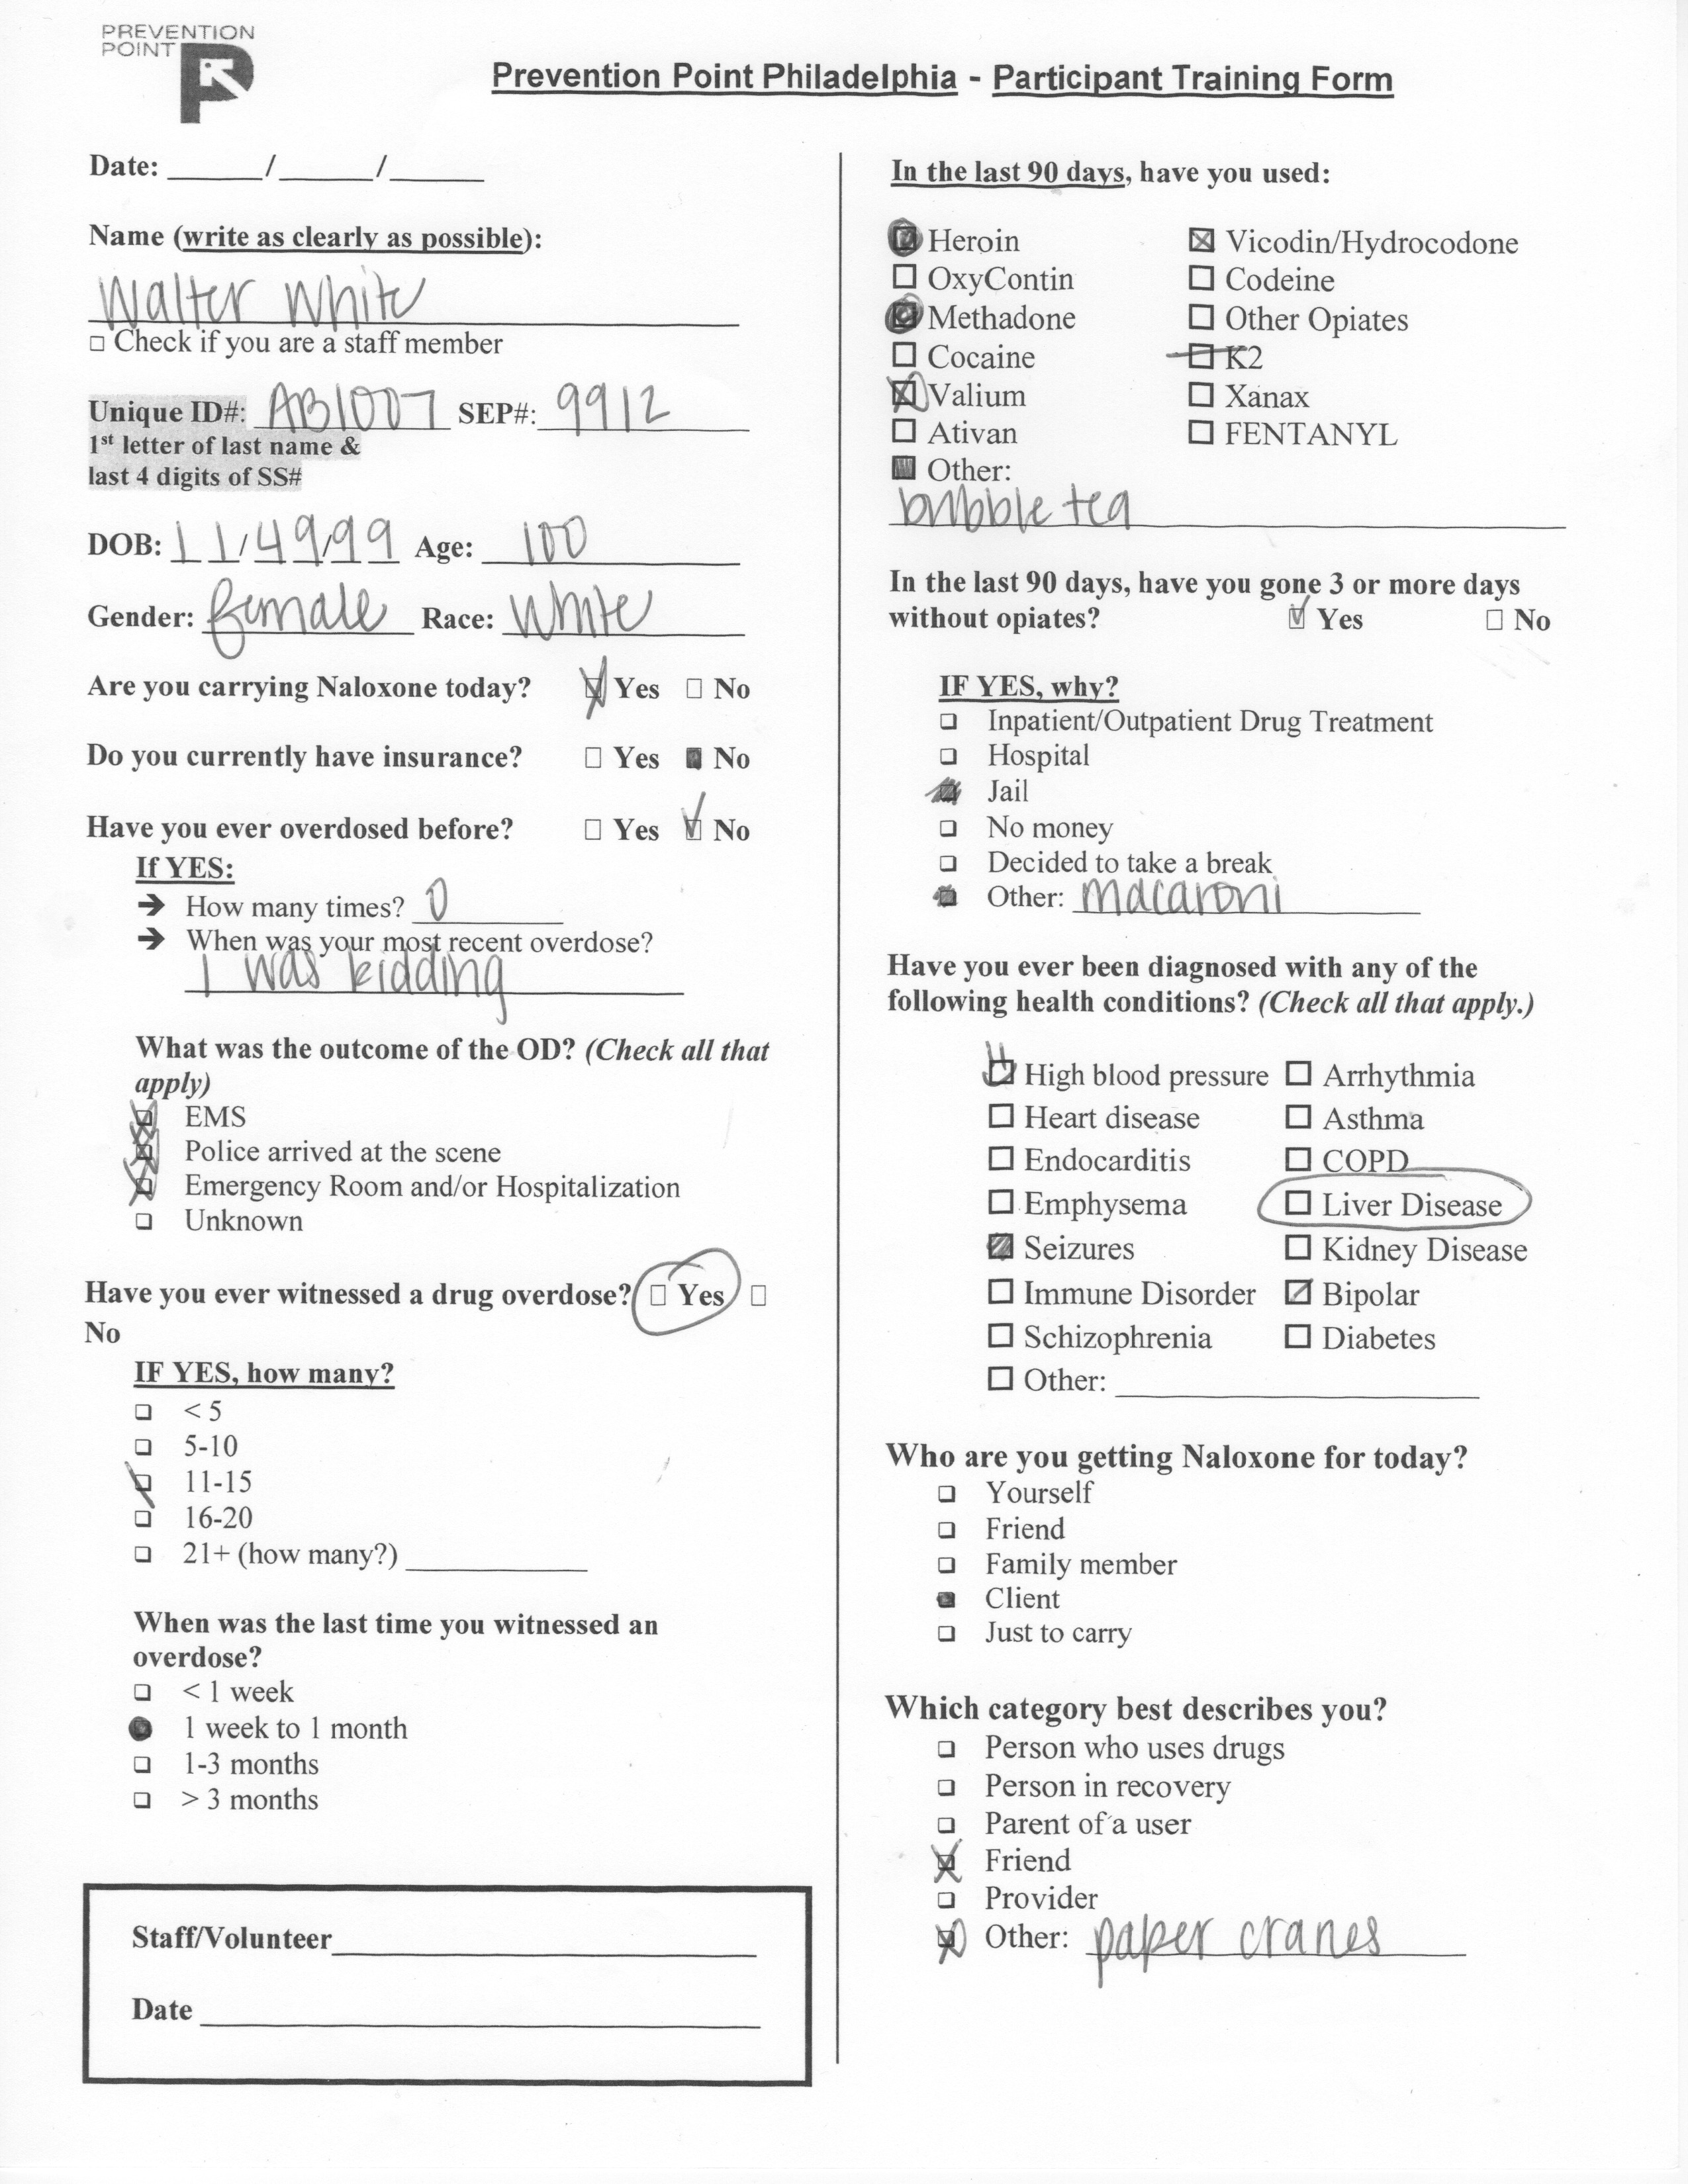 PREVENTION
POINT
Prevention Point Philadelphia - Participant Training Form
Date: ______/______/______
Name (write as clearly as possible):
Walter White
☐ Check if you are a staff member
Unique ID#: AB1007 SEP#: 9912
1st letter of last name &
last 4 digits of SS#
DOB: 11/49/99 Age: 100
Gender: female Race: White
Are you carrying Naloxone today? ☒ Yes ☐ No
Do you currently have insurance? ☐ Yes ☒ No
Have you ever overdosed before? ☐ Yes ☑ No
If YES:
➔ How many times? 0
➔ When was your most recent overdose?
I was kidding
What was the outcome of the OD? (Check all that
apply)
☒ EMS
☒ Police arrived at the scene
☒ Emergency Room and/or Hospitalization
☐ Unknown
Have you ever witnessed a drug overdose? ☐ Yes ☐
No
IF YES, how many?
☐ < 5
☐ 5-10
☒ 11-15
☐ 16-20
☐ 21+ (how many?) ____________
When was the last time you witnessed an
overdose?
☐ < 1 week
☒ 1 week to 1 month
☐ 1-3 months
☐ > 3 months
Staff/Volunteer____________
Date ____________
In the last 90 days, have you used:
☒ Heroin ☒ Vicodin/Hydrocodone
☐ OxyContin ☐ Codeine
☒ Methadone ☐ Other Opiates
☐ Cocaine ☐ K2
☒ Valium ☐ Xanax
☐ Ativan ☐ FENTANYL
☒ Other:
bubble tea
In the last 90 days, have you gone 3 or more days
without opiates? ☑ Yes ☐ No
IF YES, why?
☐ Inpatient/Outpatient Drug Treatment
☐ Hospital
☒ Jail
☐ No money
☐ Decided to take a break
☒ Other: macaroni
Have you ever been diagnosed with any of the
following health conditions? (Check all that apply.)
☑ High blood pressure ☐ Arrhythmia
☐ Heart disease ☐ Asthma
☐ Endocarditis ☐ COPD
☐ Emphysema ☐ Liver Disease
☒ Seizures ☐ Kidney Disease
☐ Immune Disorder ☑ Bipolar
☐ Schizophrenia ☐ Diabetes
☐ Other: ____________
Who are you getting Naloxone for today?
☐ Yourself
☐ Friend
☐ Family member
☒ Client
☐ Just to carry
Which category best describes you?
☐ Person who uses drugs
☐ Person in recovery
☐ Parent of a user
☒ Friend
☐ Provider
☒ Other: paper cranes